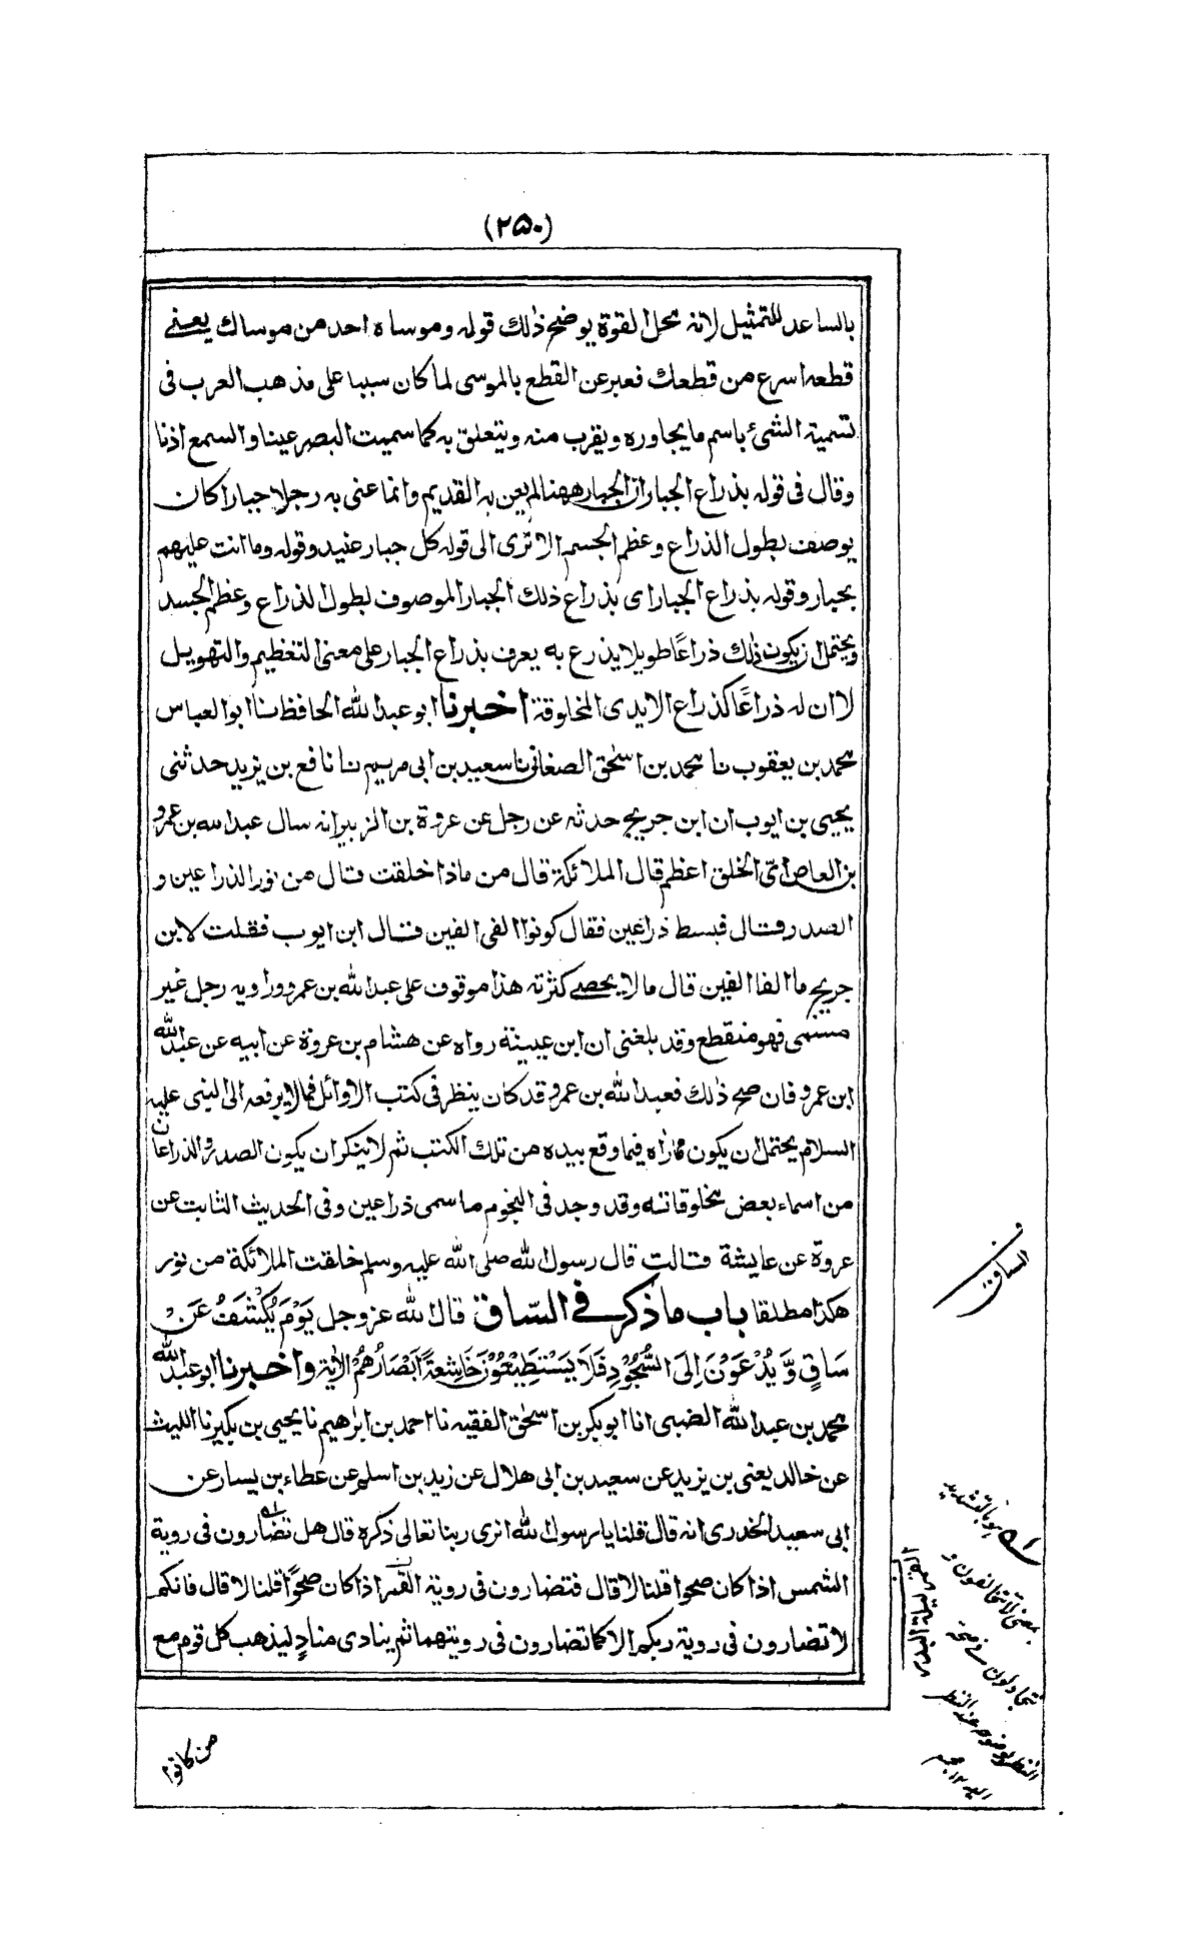 (۲۵۰)
بالساعد للتمثيل لانه محل القوة يوضح ذلك قوله وموساه احد من موساك يعنے
قطعه اسرع من قطعك فعبر عن القطع بالموسى لما كان سببا على مذهب العرب فى
تسمية الشئ باسم ما يجاوره ويقرب منه ويتعلق به كما سميت البصر عينا والسمع اذنا
وقال فى قوله بذراع الجبار ان الجبار ههنا لم يعن به القديم وانما عنى به رجلا جبارا كان
يوصف بطول الذراع وعظم الجسم الا ترى الى قوله كل جبار عنيد وقوله وما انت عليهم
بجبار وقوله بذراع الجبار اى بذراع ذلك الجبار الموصوف بطول الذراع وعظم الجسد
ويحتمل ان يكون ذلك ذراعًا طويلا يذرع به يعرف بذراع الجبار على معنى التعظيم والتهويل
لا ان له ذراعًا كذراع الايدى المخلوقة اخبرنا ابو عبد الله الحافظ نا ابو العباس
محمد بن يعقوب نا محمد بن اسحٰق الصغانى نا سعيد بن ابى مريم نا نافع بن يزيد حدثنى
يحيى بن ايوب ان ابن جريج حدثه عن رجل عن عروة بن الزبير انه سال عبد الله بن عمرو
بن العاص اىّ الخلق اعظم قال الملائكة قال من ماذا خلقت قال من نور الذراعين و
الصدر قال فبسط ذراعين فقال كونوا الفى الفين قال ابن ايوب فقلت لابن
جريج ما الفا الفين قال ما لا يحصے كثرته هذا موقوف على عبد الله بن عمرو وراويه رجل غير
مسمى فهو منقطع وقد بلغنى ان ابن عيينة رواه عن هشام بن عروة عن ابيه عن عبد الله
ابن عمرو فان صح ذلك فعبد الله بن عمرو قد كان ينظر فى كتب الاوائل فما لا يرفعه الى النبى عليه
السلام يحتمل ان يكون مما راٰه فيما وقع بيده من تلك الكتب ثم لا ينكر ان يكون الصدر والذراعان
من اسماء بعض مخلوقاته وقد وجد فى النجوم ما سمى ذراعين وفى الحديث الثابت عن
عروة عن عايشة قالت قال رسول الله صلى الله عليه وسلم خلقت الملائكة من نور
هكذا مطلقا باب ما ذكر فے السّاق قال الله عز وجل يَوْمَ يُكْشَفُ عَنْ
سَاقٍ وَّيُدْعَوْنَ اِلَى السُّجُوْدِ فَلَا يَسْتَطِيْعُوْنَ خَاشِعَةً اَبْصَارُهُمْ الاٰية واخبرنا ابو عبد الله
محمد بن عبد الله الضبى انا ابو بكر بن اسحٰق الفقيه نا احمد بن ابرٰهيم نا يحيى بن بكير نا الليث
عن خالد يعنى بن يزيد عن سعيد بن ابى هلال عن زيد بن اسلم عن عطاء بن يسار عن
ابى سعيد الخدرى انه قال قلنا يا رسول الله انرى ربنا تعالى ذكره قال هل تضارون فى روية
الشمس اذا كان صحوا قلنا لا قال فتضارون فى روية القمر اذا كان صحوًا قلنا لا قال فانكم
لا تضارون فى روية ربكم الا كما تضارون فى رويتهما ثم ينادى منادٍ ليذهب كل قوم مع
الساق
هو بالتشديد
بمعنى لا تتخالفون و
تتجادلون فے صحة
النظر لوضوحه عند النظر
القمر ليلة البدر
من كانوا